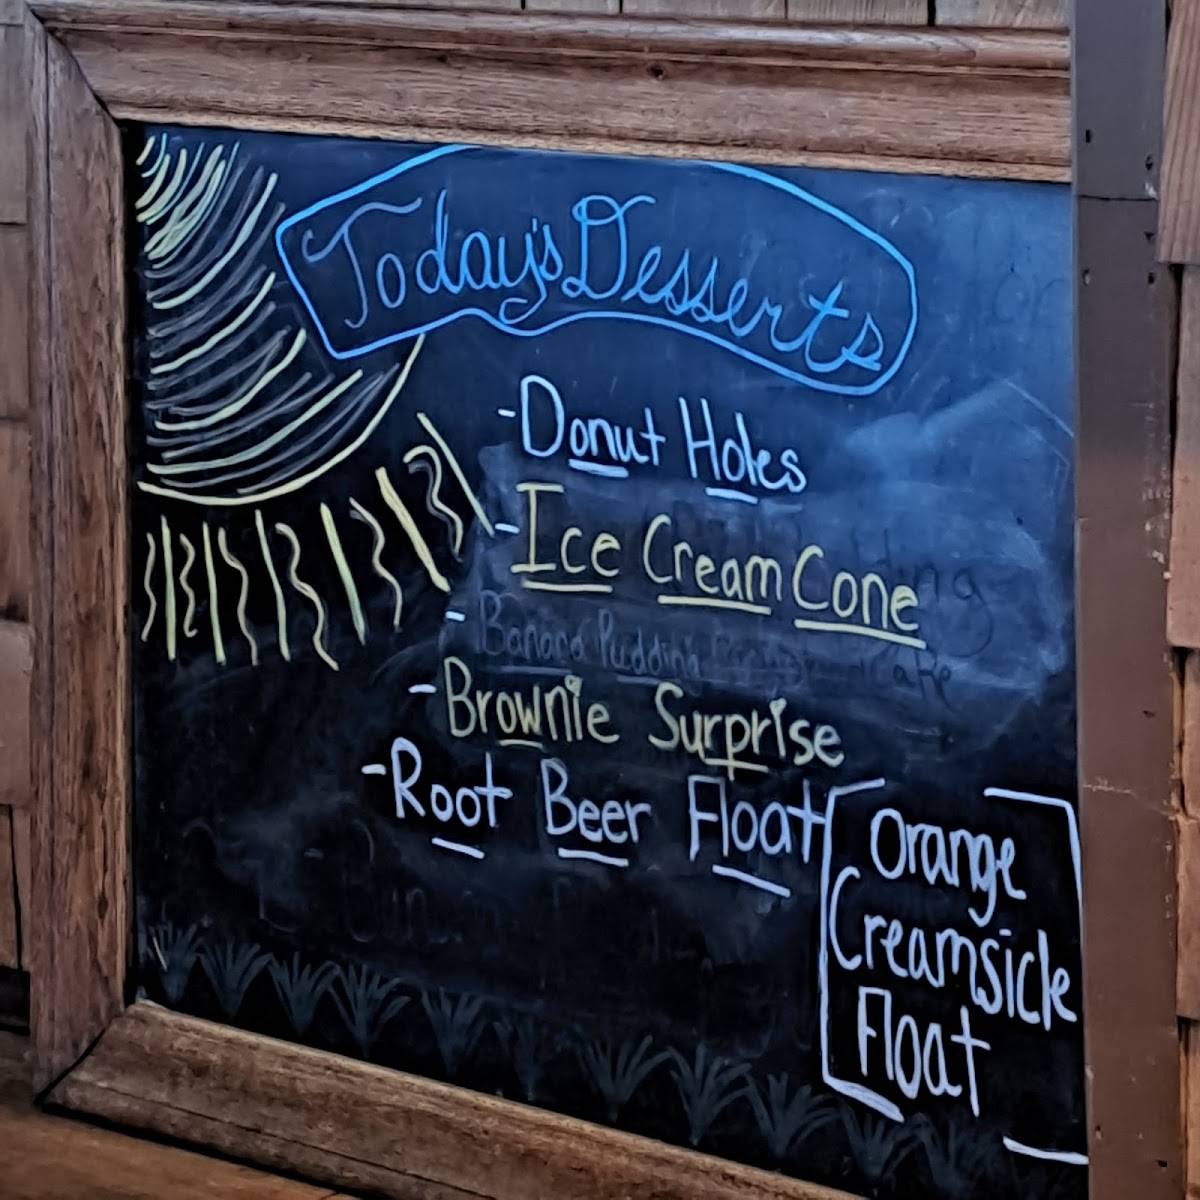 Today's Desserts
-Donut Holes
-Ice Cream Cone
- Banana Pudding
-Brownie Surprise
-Root Beer Float
Orange
Creamsicle
Float